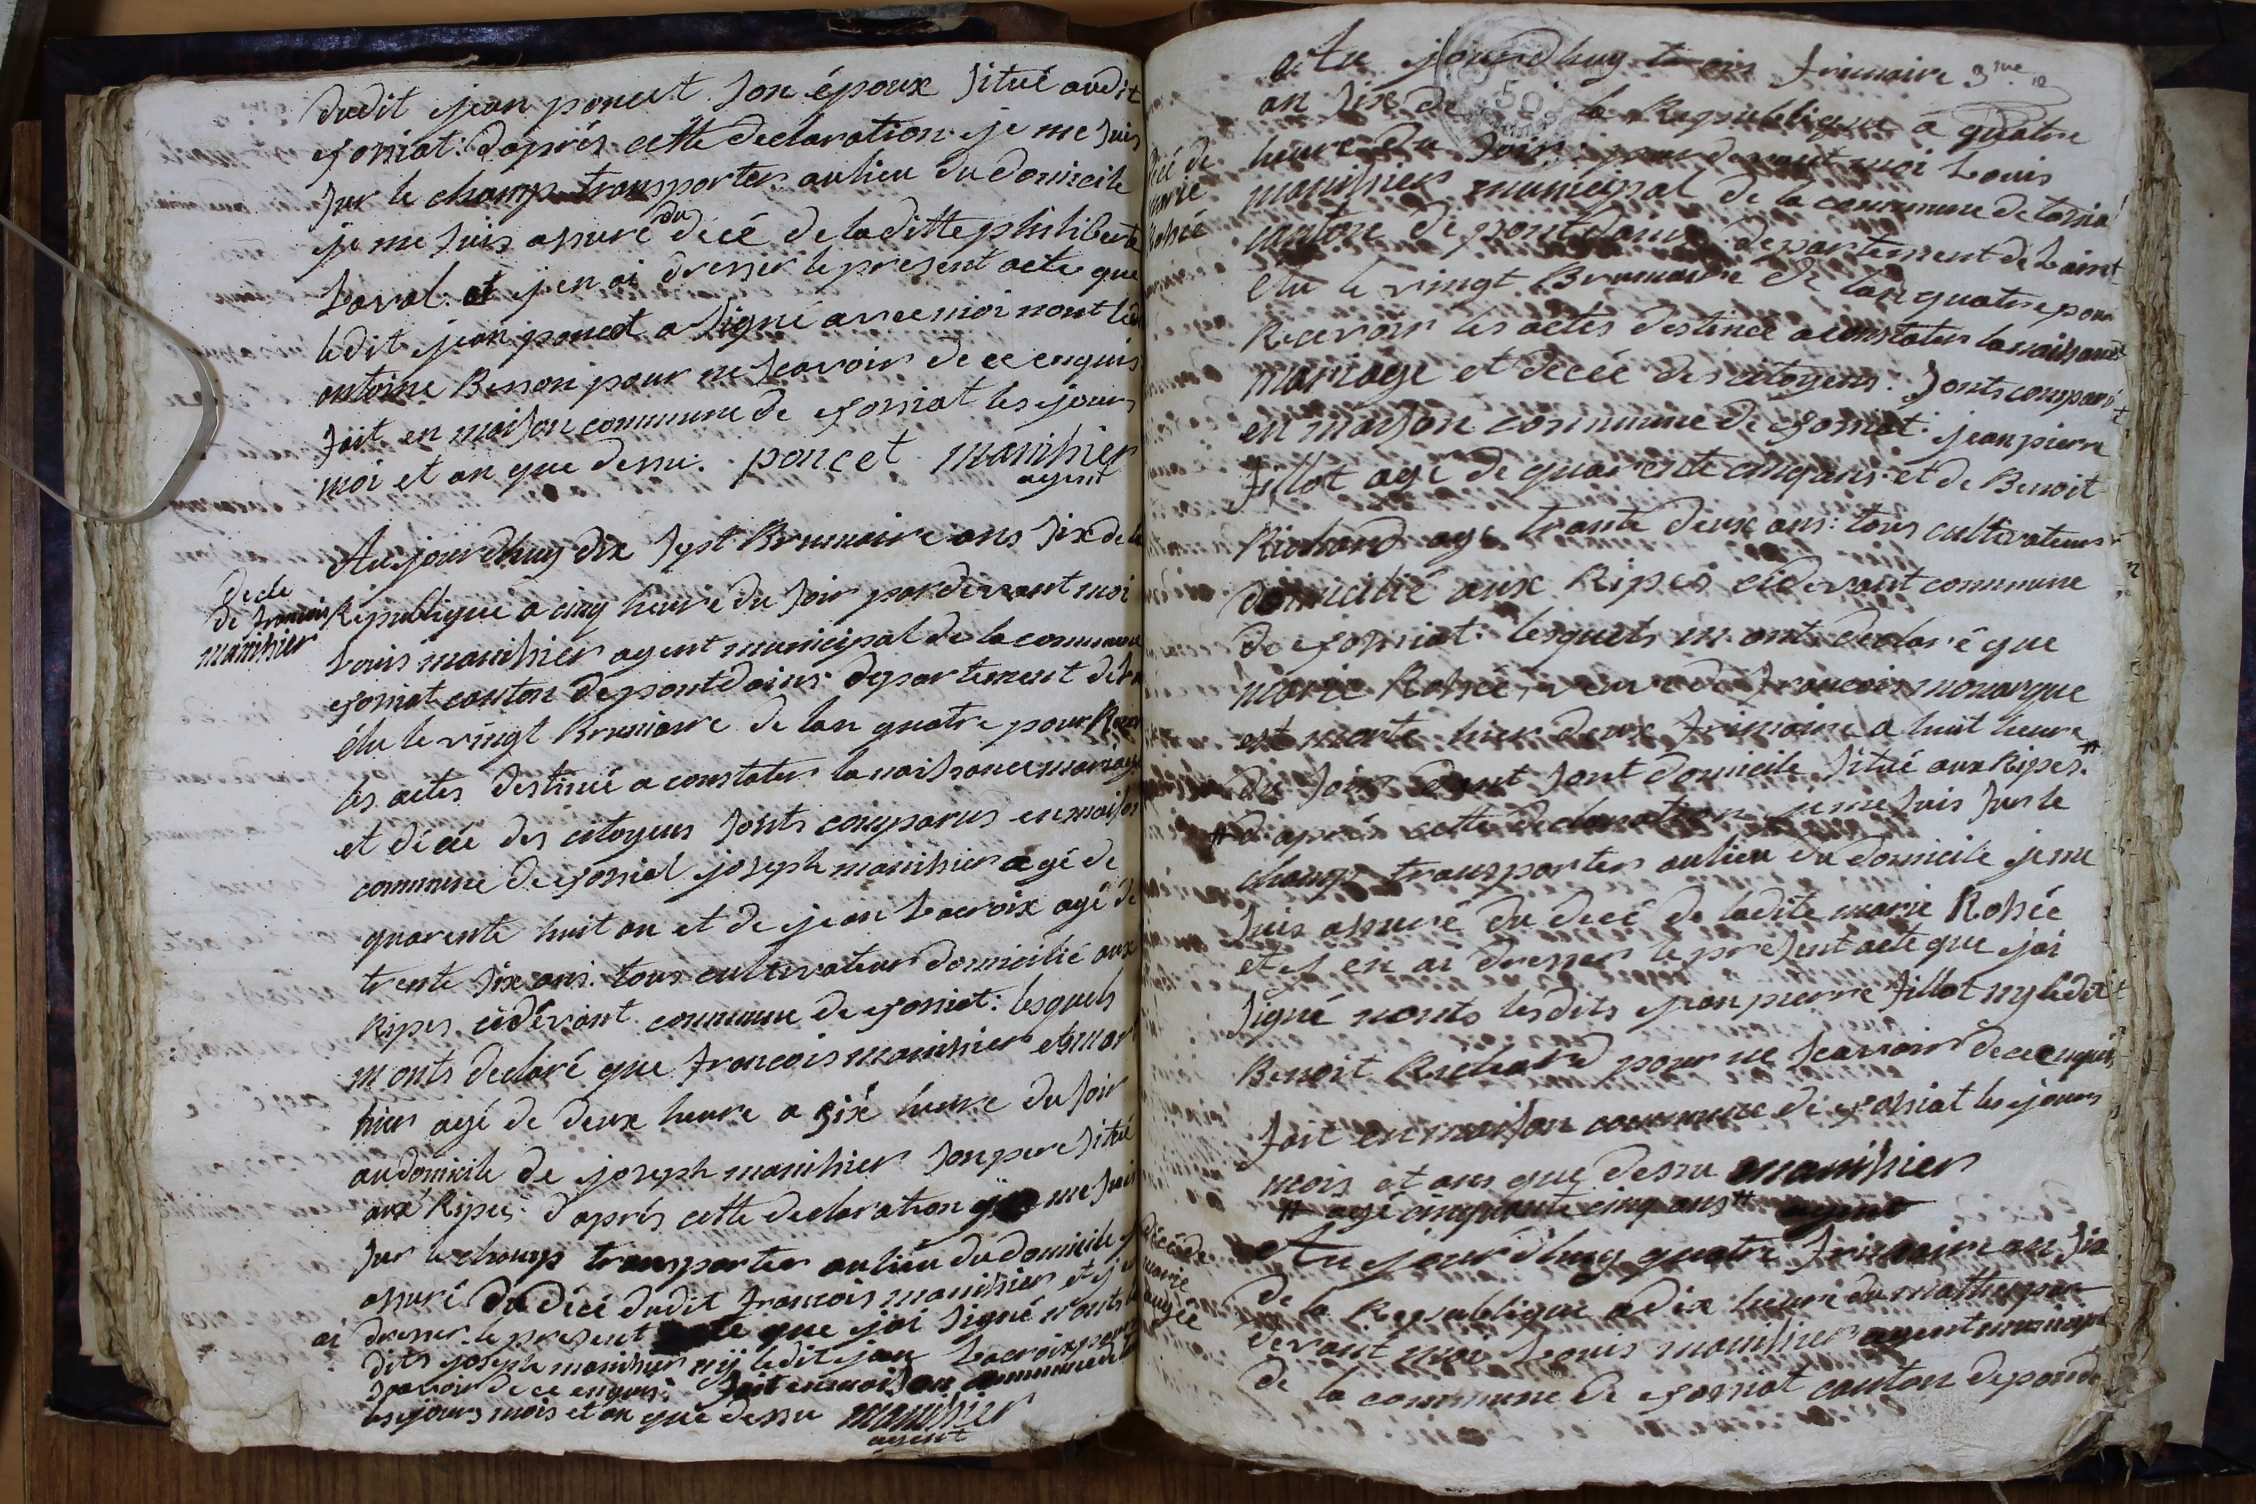 dudit jean poncet son époux situé audit
josniat: daprés cette declaration je me suis
sur le champs transporter au lieu du domicile
je me suis assuré du décé de laditte philiberte
Laval et jen ai dresser le present acte que
ledit jean poncet a signé avec moi nont ledit
antoine Besson pour ne scavoir de ce enquis
fait en maison commune de josniat les jour
moi et an que dessu. poncet manihier
agent
decé
de francois
manihier
Aujourdhuy dix sept Brumaire ans six de la
Republique a cinq heure du soir pardevant moi
Louis manihier agent municipal de la commune
josniat canton de pontdains departement de
élu le vingt Brumaire de lan quatre pour
les actes destiné a constater la naissance mariage
et décée des citoyens sonts comparus en maison
commune de josniat joseph manihier agé de
quarente huit an et de jean Lacroix agé de
trente six ans: tous cultivateur domicilié aux
Ripes cidevant commune de josniat: lesquels
monts declaré que francois manihier est mort
hier agé de deux heure a sixé heure du soir
au domicile de joseph manihier son pere situé
aux Ripes: daprés cette declaration je me suis
sur le champs transporter au lieu du domicile
assuré du décé dudit francois manihier et j
ai dresser le present acte que jai signé nonts les
dits joseph manihier nij ledit jean Lacroix pour
scavoir de ce enquis: fait en maison commune de
les jours mois et an que dessu manihier
agent
Aujourdhuy trois frimaire 3me
an six de la Republique a quatre
heure du soir pardevant moi Louis
decé de
marie
Rossée
manihier municipal de la commune de
canton de pontdains departement de Lain
élu le vingt Brumaire de lan quatre pour
Recevoir les actes destinée a constater la naissance
mariage et décée des citoyens: sonts comparu
en maison commune de josniat: jean pierre
fillot agé de quarente cinq ans et de Benoit
Richard agé trante deux ans: tous cultivateur
domicilié aux Ripes cidevant commune
de josniat: lesquels m ont declaré que
marie Rossée, veuve de francois monarque
est morte hier deux frimaire a huit heure
du soir dant sont domicile situé aux Ripes #
# daprés cette declaration je me suis sur le
champs transporter au lieu du domicile je me
suis assuré du decé de ladite marie Rossée
et j en ai dresser le present acte que jai
signé nonts lesdits jean pierre fillot ny ledit
Benoit Richard pour ne scavoir de ce enquis
fait en maison commune de josniat les jours
mois et ans que dessu manihier
# agé cinquante cinq ans # agent
décé de
marie
Aujourdhuy quatre frimaire an six
de la Republique a dix heure du mattin par
devant moi Louis manihier agent municipal
de la commune de josniat canton de pond